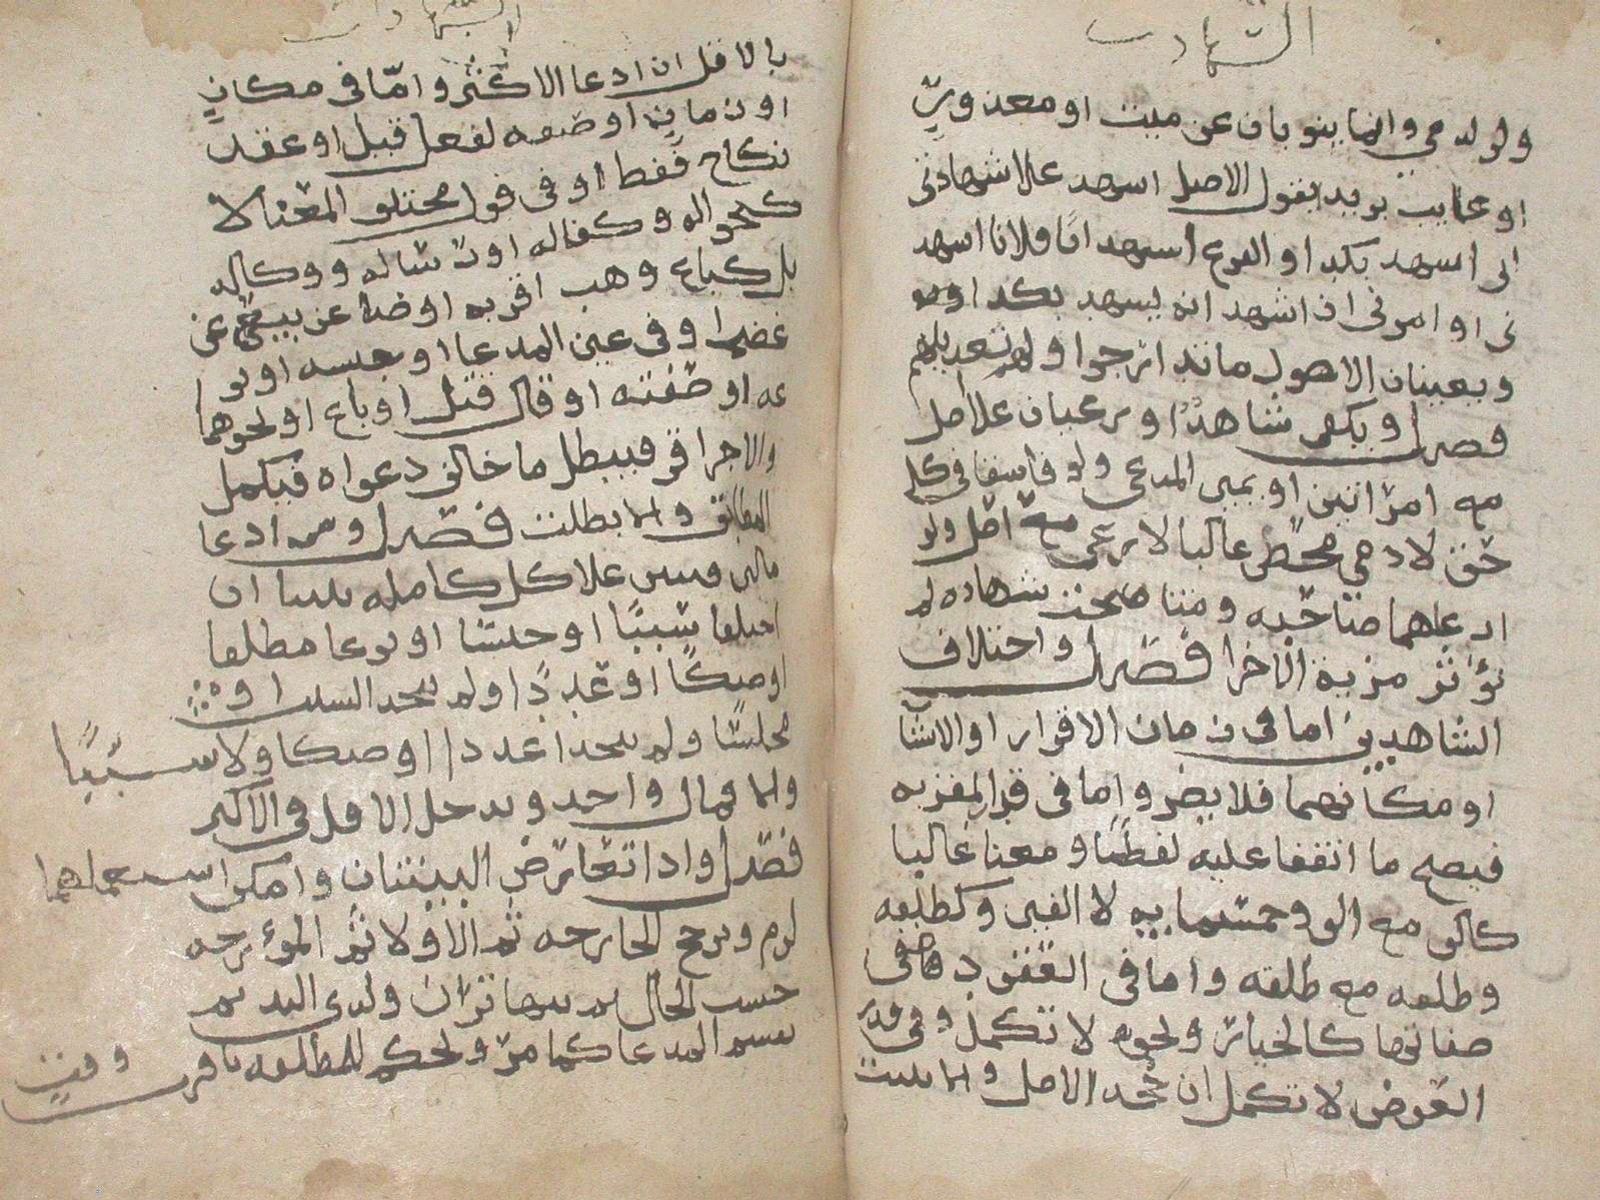 الشهادت
ولو لدمي وانما ينوبان عن ميت او معذور
او غايب بريد يقول الاصل اشهد علا شهادتي
اني اشهد بكد او الفرع اشهد ان فلانا اشهد
ني او امرني ان اشهد انه يشهد بكد او
ويعينان الاصول ما تدارجوا ولهم تعديلهم
فصل ويكفي شاهد او رعيان علا اصل
مع امراتين او يمين المدعي ولو فاسقا في كل
حق لادمي محض غالبا لا رعي مع اصل ولو
ادعاهما صاحبه ومتا صحت شهاده لم
تؤثر مزية الاخرا فصل واختلاف
الشاهدين اما في زمان الاقرار او الانشا
او مكانهما فلا يضر واما في قدر المقر به
فيصح ما اتفقا عليه لفظا ومعنا غالبا
كالف مع الف وخمسمايه لا الفين وكطلقه
وطلقه مع طلقه واما في العقود ففي
صفاتها كالخيار ونحوه لا تكمل وفي قدر
العوض لا تكمل ان جحد الاصل والا ثبت
الشهادات
بالاقل ان ادعا الاكثر واما في مكان
او زمان او صفه لفعل قيل او عقد
نكاح فقط او في قول مختلف المعنا لا
كحواله وكفاله او رساله ووكاله
بل كباع وهب اقر به او ضا عن بيع عن
غصب او في عين المدعا او جنسه او نو
عه او صفته او قال قتل او باع او نحوهما
والاخر اقر فيبطل ما خالف دعواه فيكمل
المطابق والا بطلت فصل ومن ادعا
مالين فبين علا كل كامله ثبتا ان
اختلفا سببا او جنسا او نوعا مطلقا
او صكا او عددا ولم يتحد السبب او
مجلسا ولم يتحدا عددا او صكا ولا سببا
والا فمال واحد ويدخل الاقل في الاكثر
فصل واذا تعارض البينتان وامكن استعمالهما
لزم وترجح الخارجه ثم الاولا ثم المؤرخه
حسب الحال ثم يتهاتران ولذي اليد ثم
يقسم المدعا كما مر ويحكم للمطلقه باقرب وقت